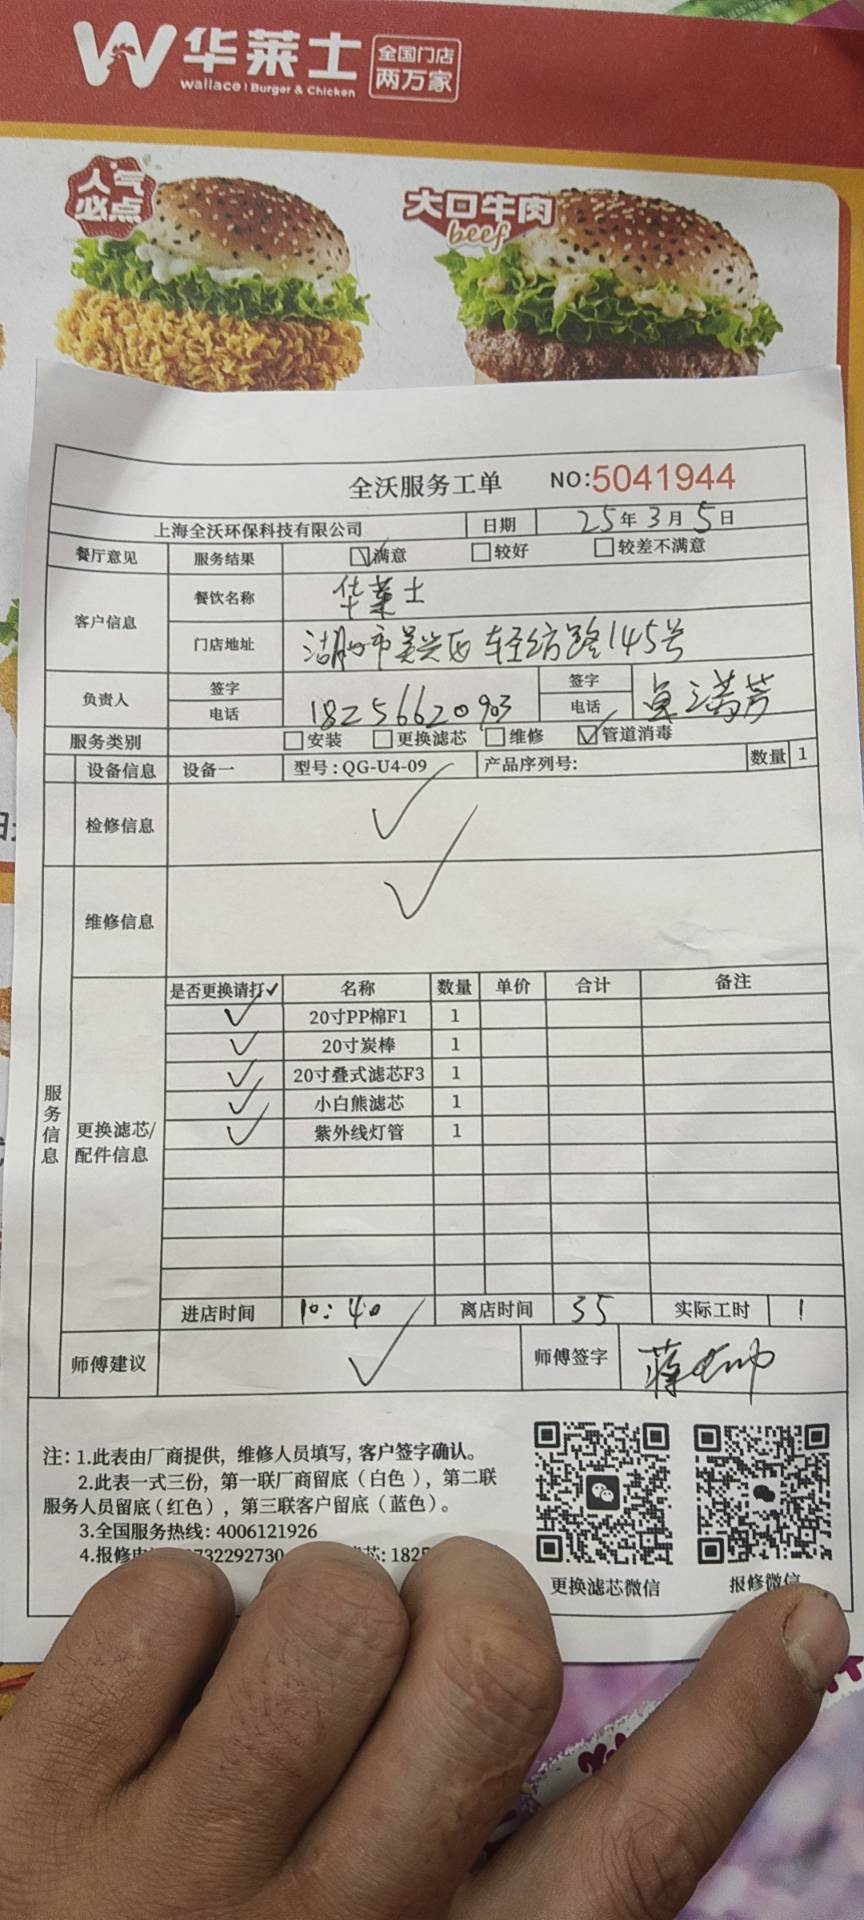 W 华莱士
wallace | Burger & Chicken
全国门店
两万家
人气
必点
大口牛肉
beef
全沃服务工单 NO:5041944
上海全沃环保科技有限公司 日期 25年3月5日
餐厅意见 服务结果 满意 较好 较差不满意
客户信息 餐饮名称 华莱士
门店地址 湖州市吴兴区轻纺路145号
负责人 签字 签字
电话 18256620903 电话
服务类别 安装 更换滤芯 维修 ✓管道消毒
设备信息 设备一 型号:QG-U4-09 产品序列号: 数量 1
检修信息 ✓
维修信息 ✓
服务信息
更换滤芯/
配件信息
是否更换请打✓ 名称 数量 单价 合计 备注
✓ 20寸PP棉F1 1
✓ 20寸炭棒 1
✓ 20寸叠式滤芯F3 1
✓ 小白熊滤芯 1
✓ 紫外线灯管 1
进店时间 10:40 离店时间 35 实际工时 1
师傅建议 ✓ 师傅签字
注: 1.此表由厂商提供, 维修人员填写, 客户签字确认。
2.此表一式三份, 第一联厂商留底(白色), 第二联
服务人员留底(红色), 第三联客户留底(蓝色)。
3.全国服务热线: 4006121926
4.报修 732292730 芯: 182
更换滤芯微信 报修微信